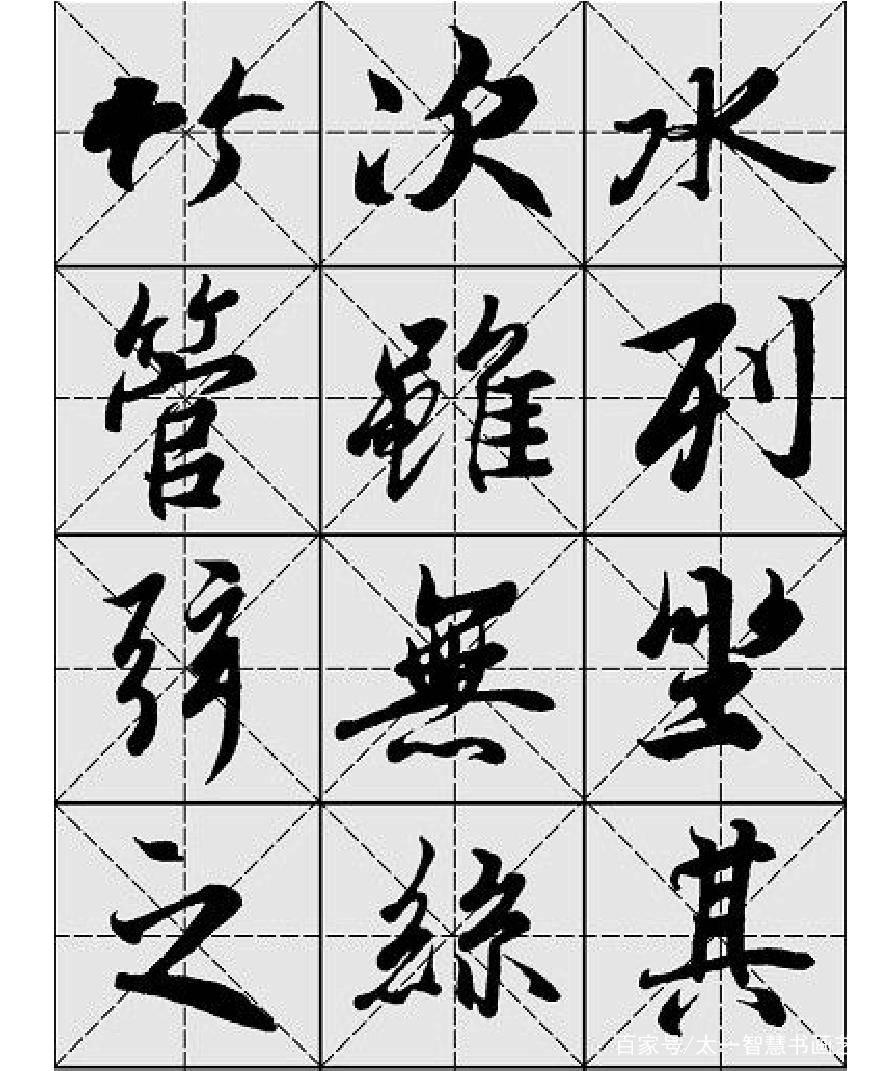 水列坐其
次雖無絲
竹管弦之
百家号/太一智慧书画艺